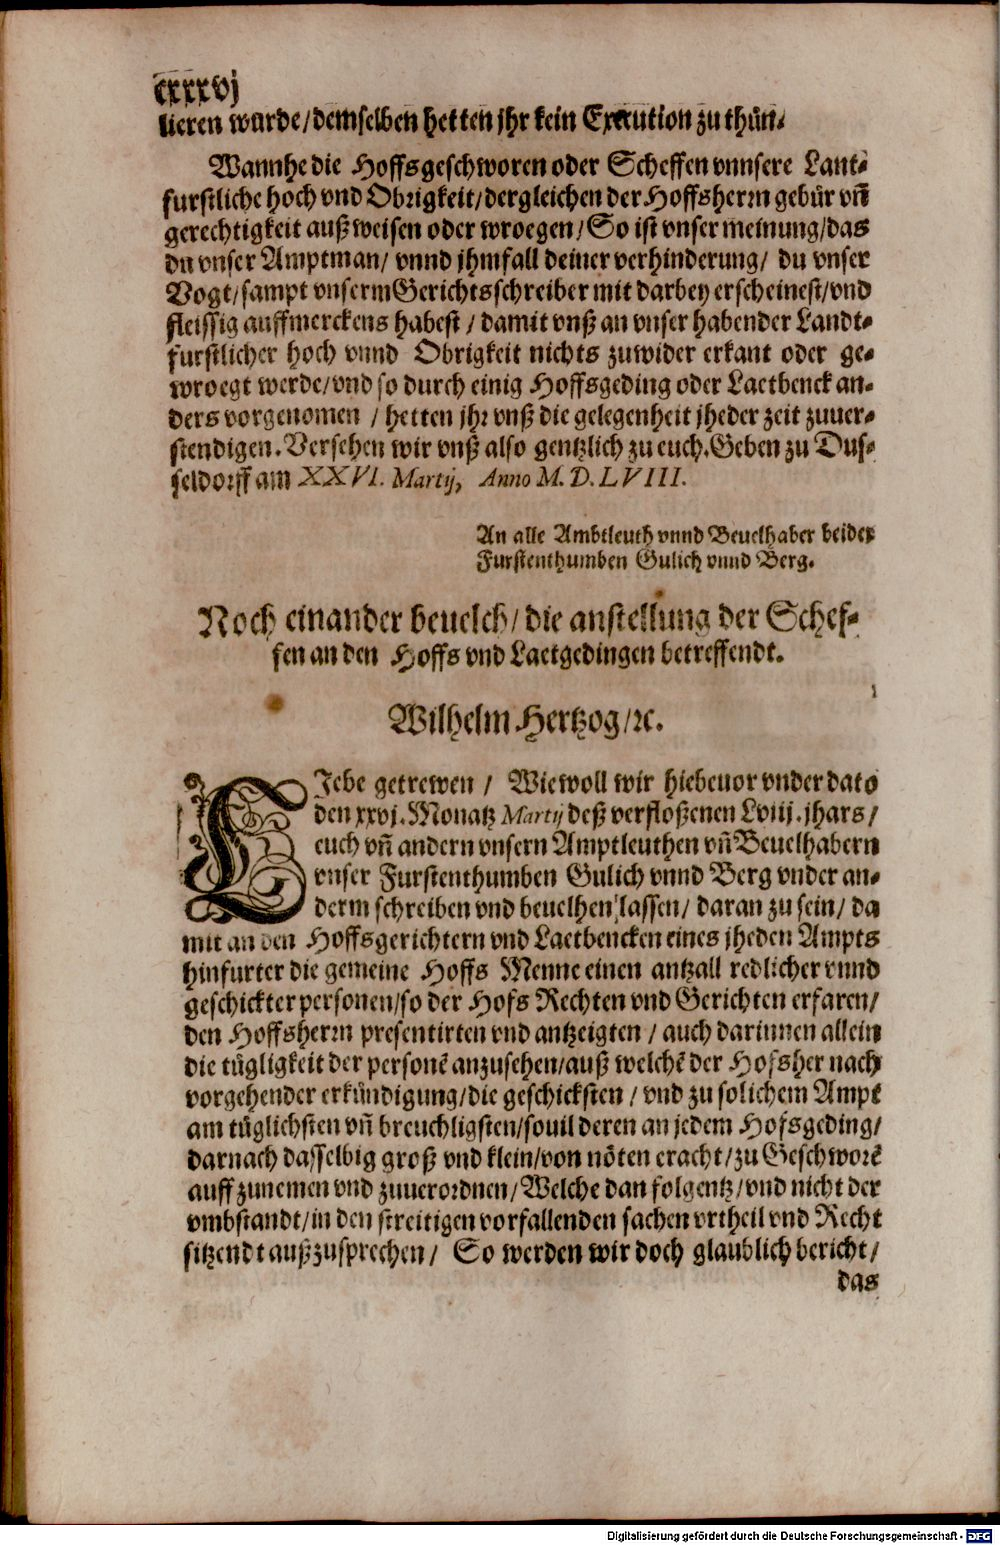 cxxxvj
lieren wurde/demselben hetten jhr kein Execution zu thůn.
Wannhe die Hoffsgeschworen oder Scheffen vnnsere Lant-
furstliche hoch vnd Obrigkeit/dergleichen der Hoffsherrn gebür vñ
gerechtigkeit außweisen oder wroegen/So ist vnser meinung/das
du vnser Amptman/ vnnd jhmfall deiner verhinderung/ du vnser
Vogt/sampt vnserm Gerichtsschreiber mit darbey erscheinest/vnd
fleissig auffmerckens habest / damit vnß an vnser habender Landt-
furstlicher hoch vnnd Obrigkeit nichts zuwider erkant oder ge-
wroegt werde/vnd so durch einig Hoffsgeding oder Laetbenck an-
ders vorgenomen / hetten jhr vnß die gelegenheit jheder zeit zuuer-
stendigen. Versehen wir vnß also gentzlich zu euch. Geben zu Dus-
seldorff am XXVI. Martij, Anno M. D. LVIII.
An alle Ambtleuth vnnd Beuelhaber beider
Furstenthumben Gulich vnnd Berg.
Noch einander beuelch/ die anstellung der Schef-
fen an den Hoffs vnd Laetgedingen betreffendt.
Wilhelm Hertzog/ꝛc.
LIebe getrewen / Wiewoll wir hiebeuor vnder dato
den xxvj. Monatz Martij deß verfloßenen Lviij. jhars/
euch vñ andern vnsern Amptleuthen vñ Beuelhabern
vnser Furstenthumben Gulich vnnd Berg vnder an-
derm schreiben vnd beuelhen lassen/ daran zu sein/ da
mit an den Hoffsgerichtern vnd Laetbencken eines jheden Ampts
hinfurter die gemeine Hoffs Menne einen antzall redlicher vnnd
geschickter personen/so der Hofs Rechten vnd Gerichten erfaren/
den Hoffsherrn presentirten vnd antzeigten / auch darinnen allein
die tügligkeit der personẽ anzusehen/auß welchẽ der Hofsher nach
vorgehender erkündigung/die geschicksten / vnd zu solichem Ampt
am tüglichsten vñ breuchligsten/souil deren an jedem Hofsgeding/
darnach dasselbig groß vnd klein/von nöten eracht/zu Geschworẽ
auff zunemen vnd zuuerordnen/Welche dan folgentz/vnd nicht der
vmbstandt/in den streitigen vorfallenden sachen vrtheil vnd Recht
sitzendt außzusprechen/ So werden wir doch glaublich bericht/
das
Digitalisierung gefördert durch die Deutsche Forschungsgemeinschaft - DFG